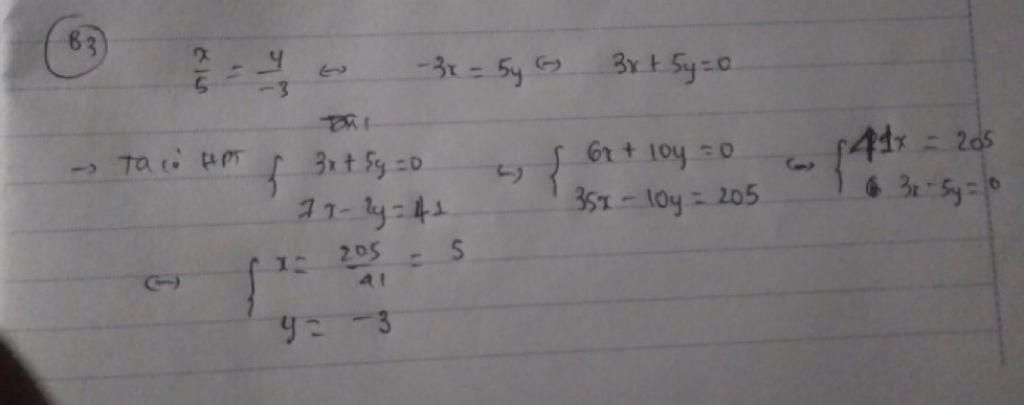 B3
x/5 = y/-3 ⇔ -3x = 5y ⇔ 3x + 5y = 0
→ Ta có HPT { 3x + 5y = 0 ; 7x - 2y = 41 ⇔ { 6x + 10y = 0 ; 35x - 10y = 205 ⇔ { 41x = 205 ; 3x - 5y = 0
⇔ { x = 205/41 = 5 ; y = -3